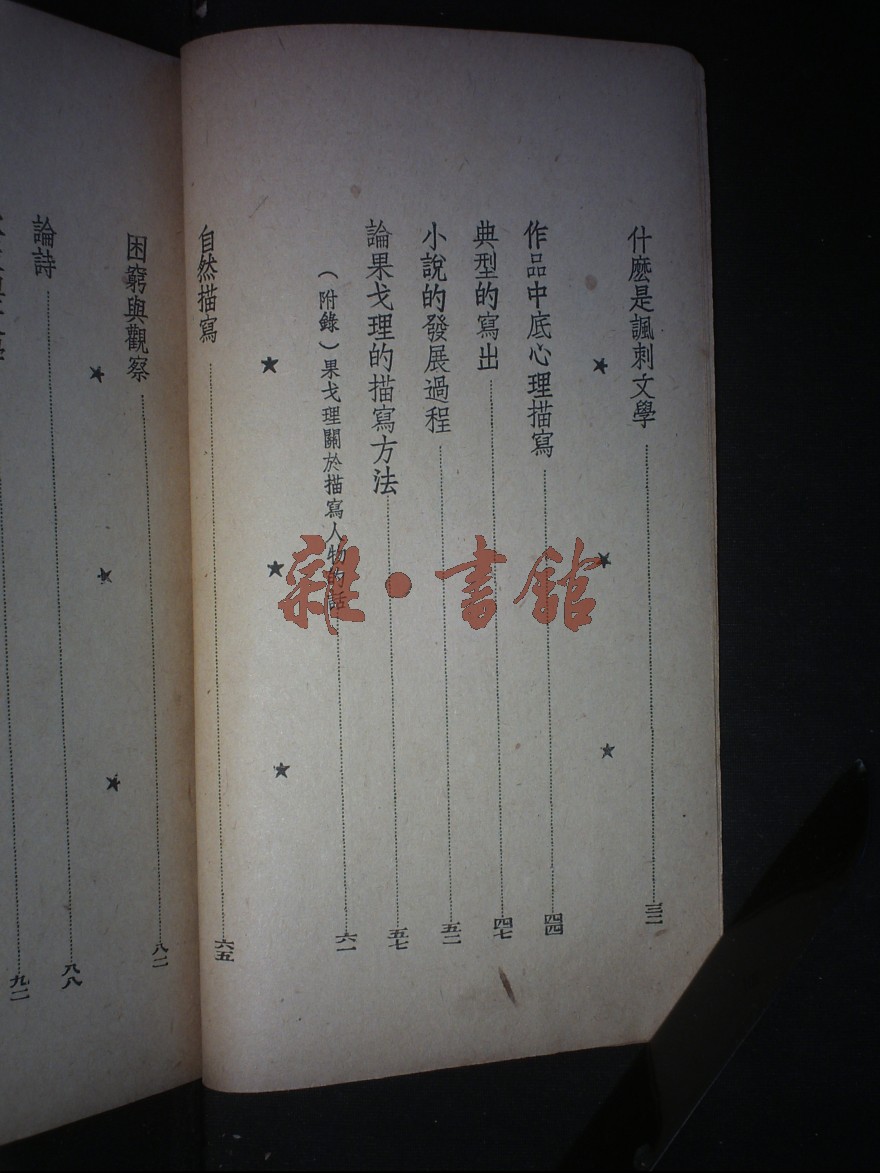 什麽是諷刺文學……三二
作品中底心理描寫……四四
典型的寫出……四七
小說的發展過程……五二
論果戈理的描寫方法……五七
（附錄）果戈理關於描寫人物的話……六一
自然描寫……六五
困窮與觀察……八二
論詩……八八
九二
雜·書館